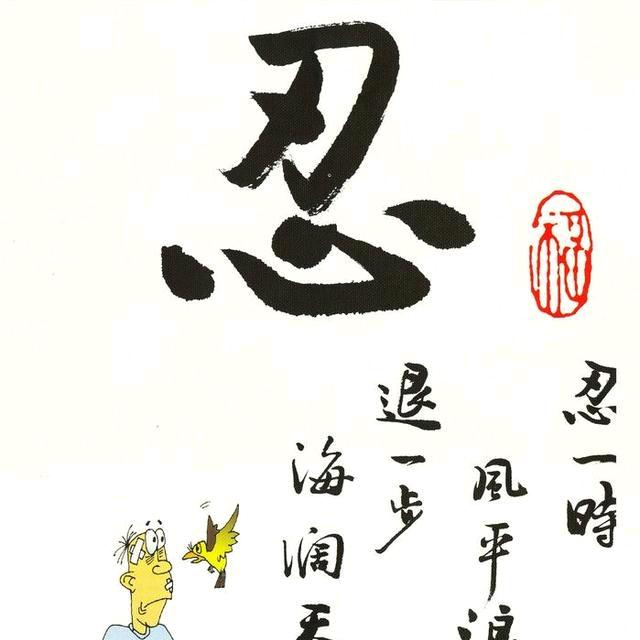 忍
忍一時
風平浪
退一步
海濶天